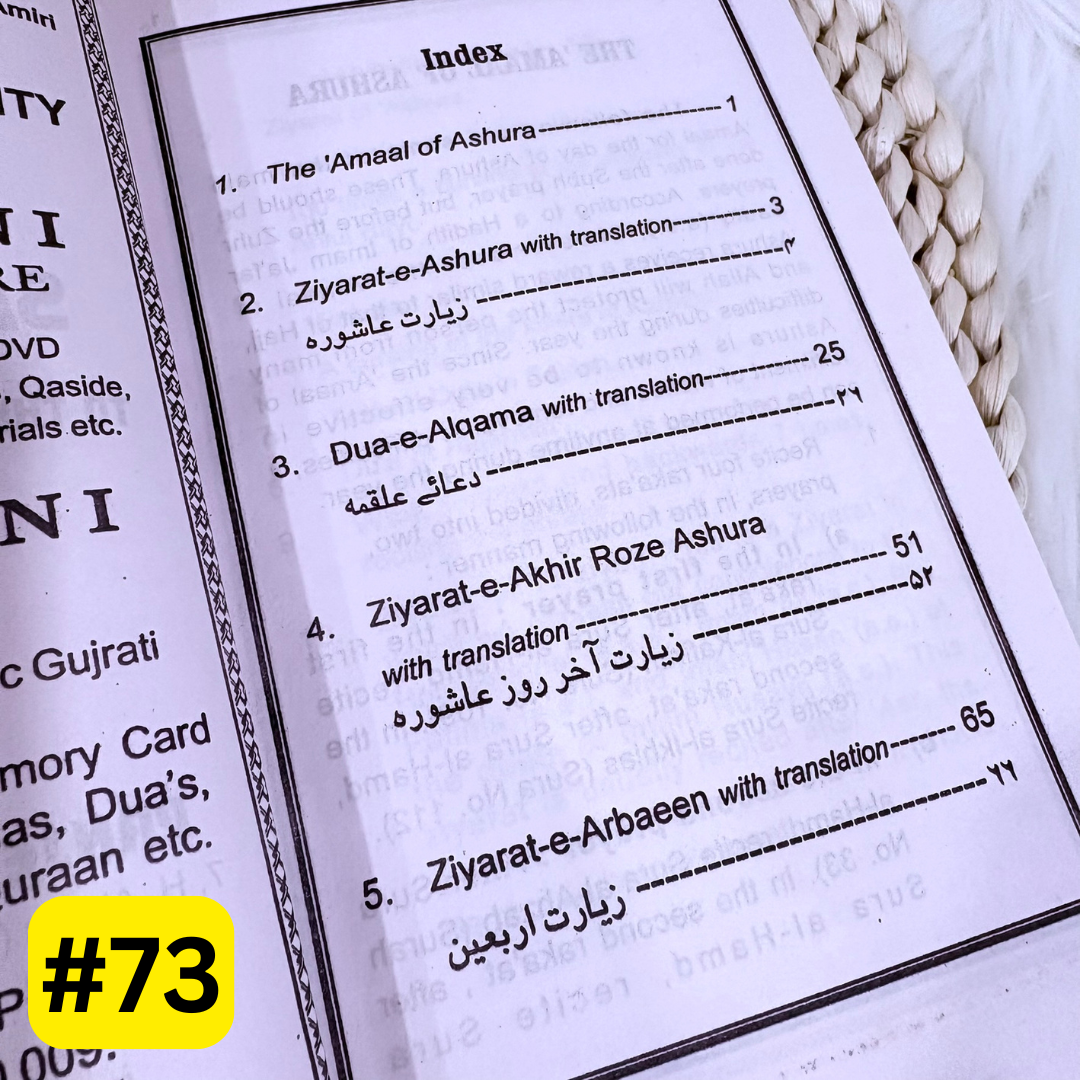 Amiri
ITY
NI
RE
DVD
, Qaside,
rials etc.
NI
c Gujrati
mory Card
as, Dua's,
uraan etc.
P
009.
#73
Index
1. The 'Amaal of Ashura---------------------- 1
2. Ziyarat-e-Ashura with translation----------- 3
زیارت عاشورہ ------------------------------۴
3. Dua-e-Alqama with translation------------ 25
دعائے علقمہ ------------------------------۲۶
4. Ziyarat-e-Akhir Roze Ashura
with translation --------------------------- 51
زیارت آخر روز عاشورہ ------------------۵۲
5. Ziyarat-e-Arbaeen with translation------- 65
زیارت اربعین -----------------------------۶۶